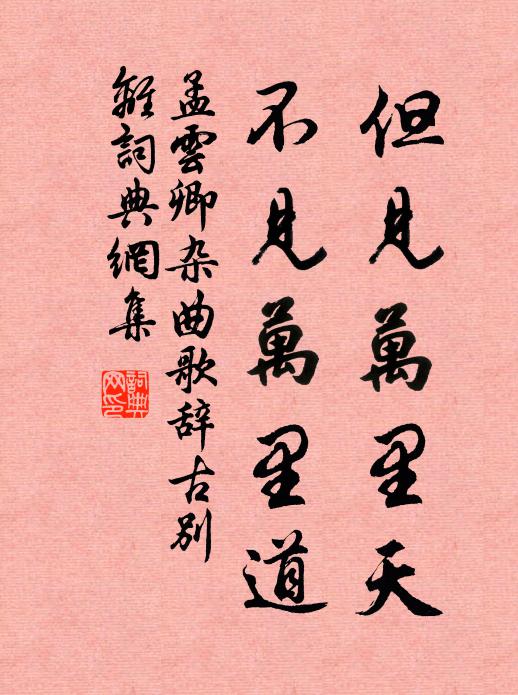 但見萬里天
不見萬里道
孟雲卿杂曲歌辞古别
離詞典網集
詞典網印